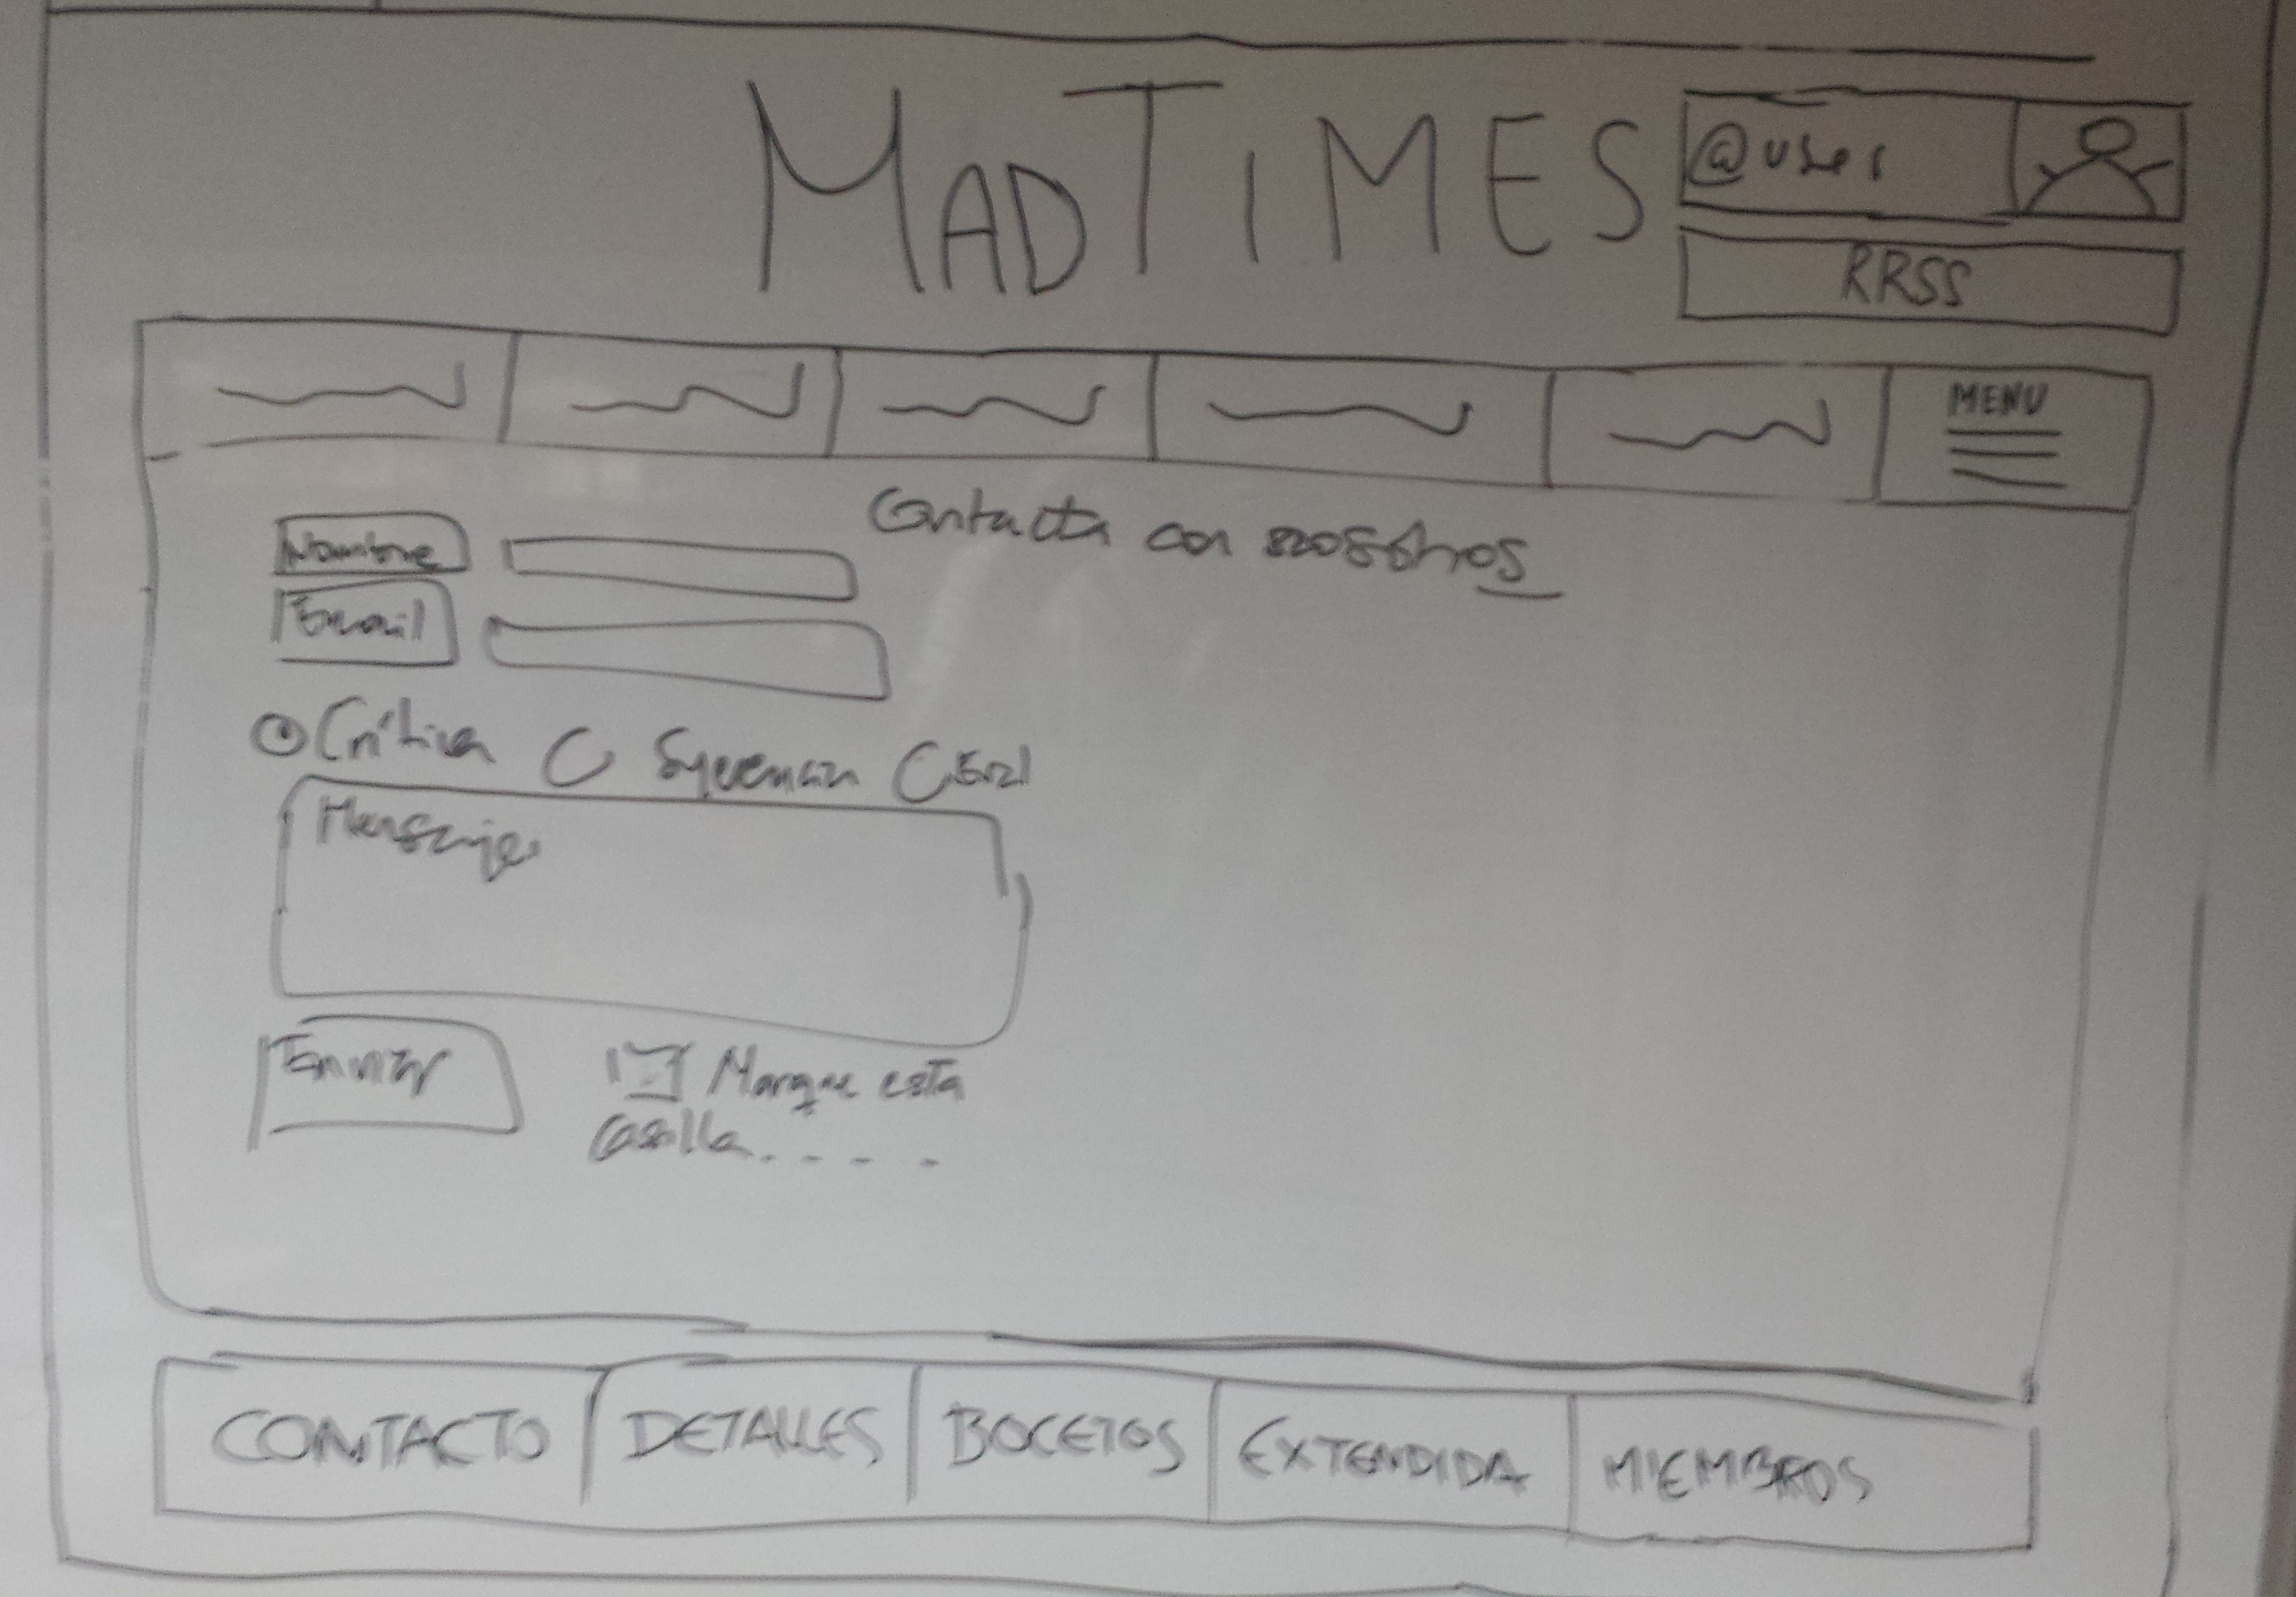 MADTIMES
@user
RRSS
MENU
Contacta con nosotros
Nombre
Email
Crítica Sugerencia
Mensaje
Enviar
Marque esta
casilla.----
CONTACTO DETALLES BOCETOS EXTENDIDA MIEMBROS